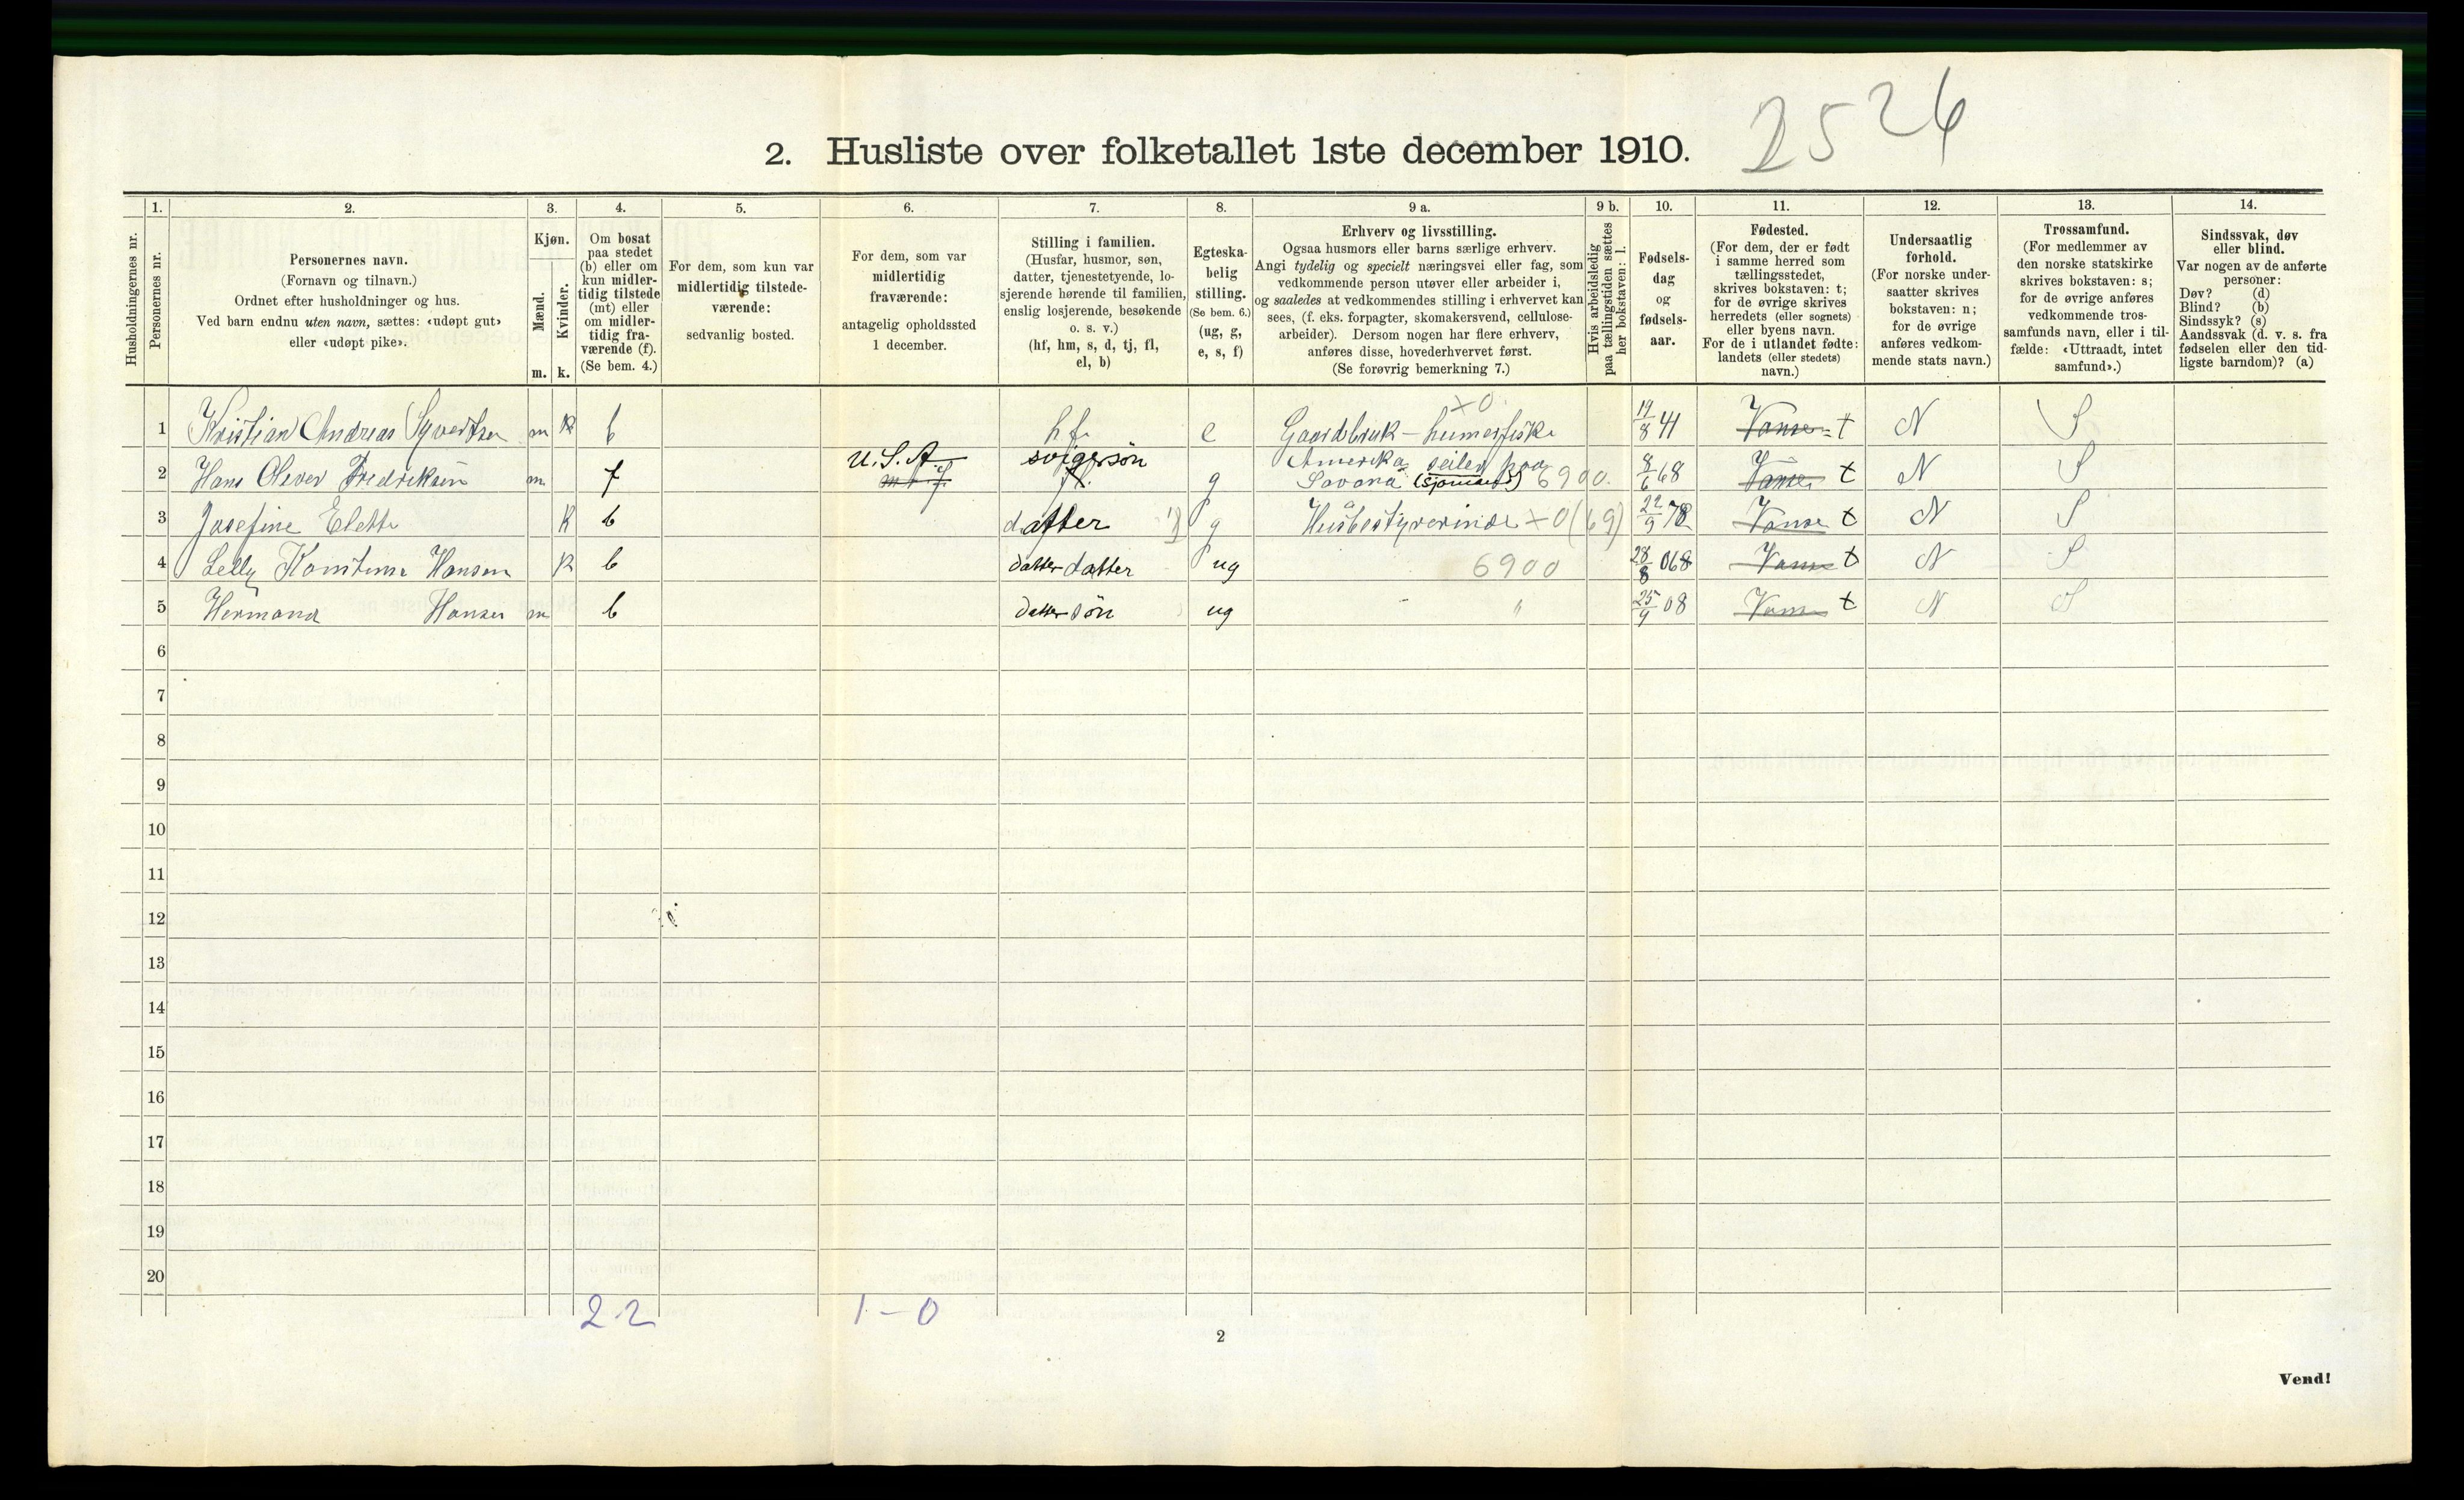 2526
2. Husliste over folketallet 1ste december 1910.
Husholdningernes nr.
1.
Personernes nr.
2.
Personernes navn.
(Fornavn og tilnavn.)
Ordnet efter husholdninger og hus.
Ved barn endnu uten navn, sættes: «udøpt gut»
eller «udøpt pike».
3.
Kjøn.
Mænd.
Kvinder.
m. k.
4.
Om bosat
paa stedet
(b) eller om
kun midler-
tidig tilstede
(mt) eller
om midler-
tidig fra-
værende (f).
(Se bem. 4.)
5.
For dem, som kun var
midlertidig tilstede-
værende:
sedvanlig bosted.
6.
For dem, som var
midlertidig
fraværende:
antagelig opholdssted
1 december.
7.
Stilling i familien.
(Husfar, husmor, søn,
datter, tjenestetyende, lo-
sjerende hørende til familien,
enslig losjerende, besøkende
o. s. v.)
(hf, hm, s, d, tj, fl,
el, b)
8.
Egteska-
belig
stilling.
(Se bem. 6.)
(ug, g,
e, s, f)
9 a.
Erhverv og livsstilling.
Ogsaa husmors eller barns særlige erhverv.
Angi tydelig og specielt næringsvei eller fag, som
vedkommende person utøver eller arbeider i,
og saaledes at vedkommendes stilling i erhvervet kan
sees, (f. eks. forpagter, skomakersvend, cellulose-
arbeider). Dersom nogen har flere erhverv,
anføres disse, hovederhvervet først.
(Se forøvrig bemerkning 7.)
9 b.
Hvis arbeidsledig
paa tællingstiden sættes
her bokstaven: l.
10.
Fødsels-
dag
og
fødsels-
aar.
11.
Fødested.
(For dem, der er født
i samme herred som
tællingsstedet,
skrives bokstaven: t;
for de øvrige skrives
herredets (eller sognets)
eller byens navn.
For de i utlandet fødte:
landets (eller stedets)
navn.)
12.
Undersaatlig
forhold.
(For norske under-
saatter skrives
bokstaven: n;
for de øvrige
anføres vedkom-
mende stats navn.)
13.
Trossamfund.
(For medlemmer av
den norske statskirke
skrives bokstaven: s;
for de øvrige anføres
vedkommende tros-
samfunds navn, eller i til-
fælde: «Uttraadt, intet
samfund».)
14.
Sindssvak, døv
eller blind.
Var nogen av de anførte
personer:
Døv? (d)
Blind? (b)
Sindssyk? (s)
Aandssvak (d. v. s. fra
fødselen eller den tid-
ligste barndom)? (a)
1 Kristian Andreas Syvertsen m k b hf e Gaardbruk - hummerfiske x0 19/8 41 Vanse = t N S
2 Hans Oliver Fredriksen m f U.S.A. svigersøn g Amerika seiler paa Savana (sjømand) 6900. 8/6 68 Vanse t N S
3 Josefine Elette k b datter g Husbestyrerinde x0 (69) 22/9 78 Vanse t N S
4 Lelly Konstanse Hansen k b datterdatter ug 6900 28/8 06 Vanse t N S
5 Hermand Hansen m b dattersøn ug " 25/9 08 Vanse t N S
6
7
8
9
10
11
12
13
14
15
16
17
18
19
20
2 2 1 - 0
2
Vend!